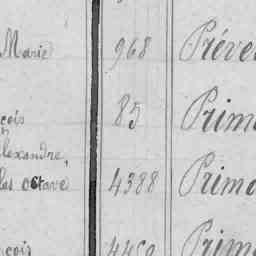 Marie 968 Préve
çois 85 Prim
lexandre,
les octave 4388 Prim
çois 4459 Prim